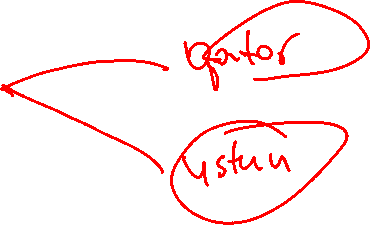 Qator
ustun